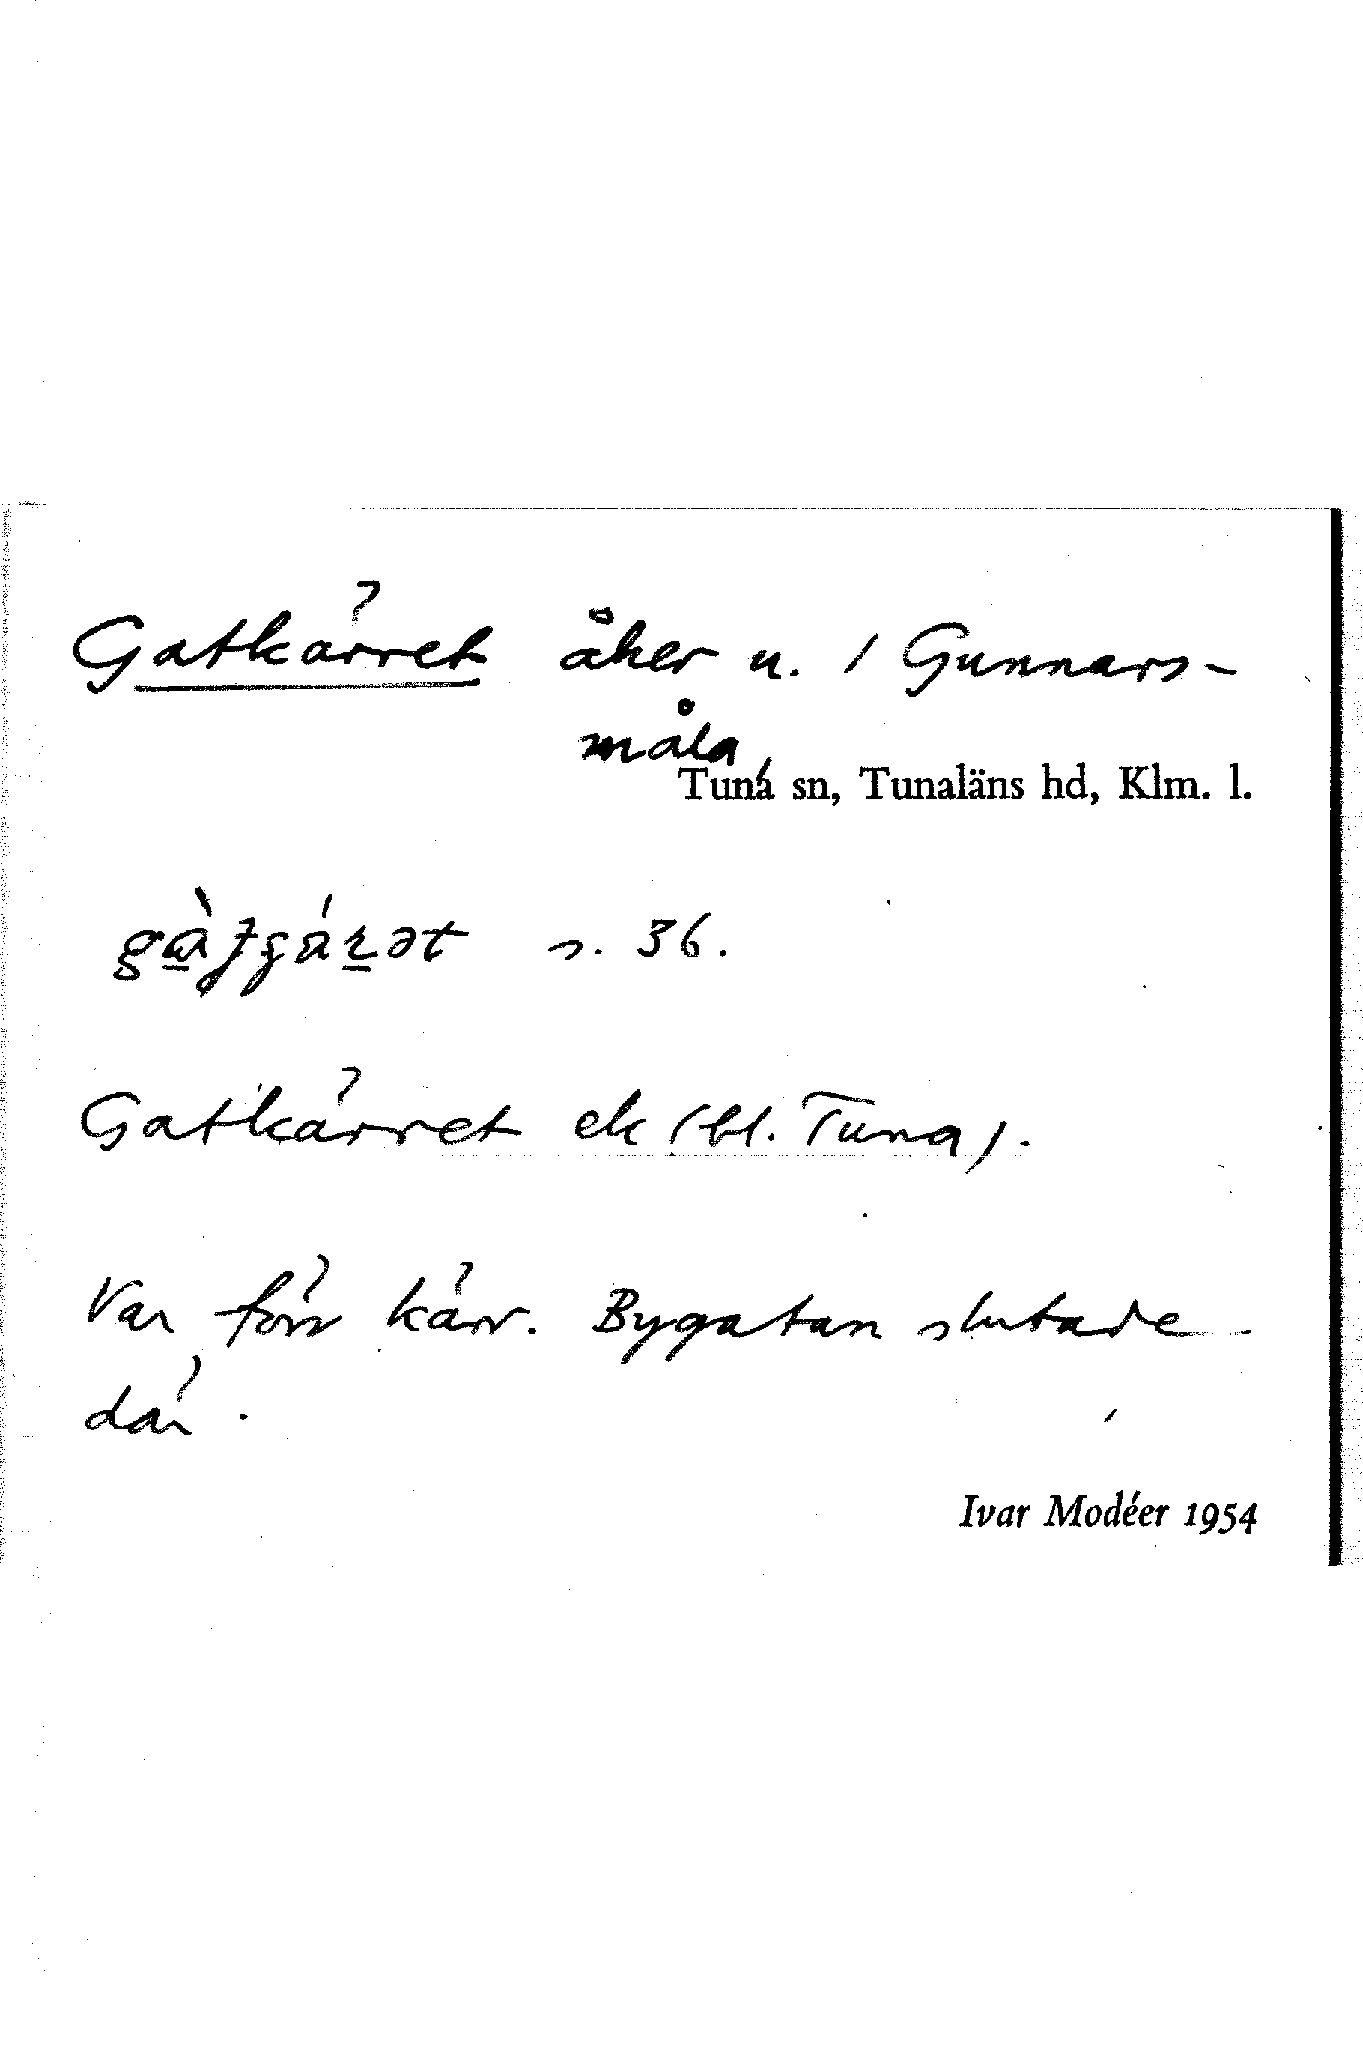 Gatkärret åker u. / Gunnars-
måla,
Tuna sn, Tunaläns hd, Klm. l.
s. 36.
Gatkärret ek (bl. Tuna).
Var förr kärr. Bygatan slutade
där.
Ivar Modéer 1954